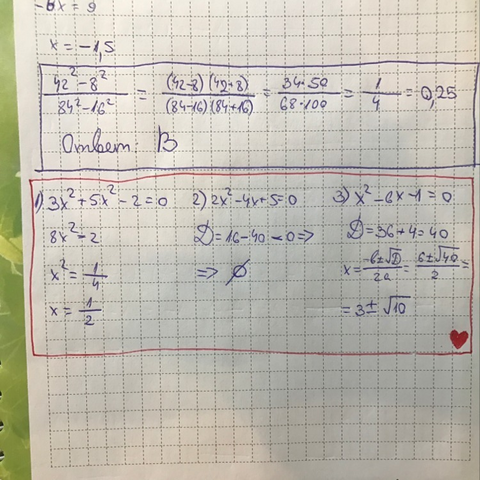 -6x = 9
x = -1,5
42² - 8² / 84² - 16² = (42-8)(42+8) / (84-16)(84+16) = 34·50 / 68·100 = 1/4 = 0,25
Ответ В
1) 3x² + 5x² - 2 = 0
8x² = 2
x² = 1/4
x = 1/2
2) 2x² - 4x + 5 = 0
D = 16 - 40 < 0 =>
=> ∅
3) x² - 6x - 1 = 0
D = 36 + 4 = 40
x = -6 ± √D / 2a = 6 ± √40 / 2 =
= 3 ± √10